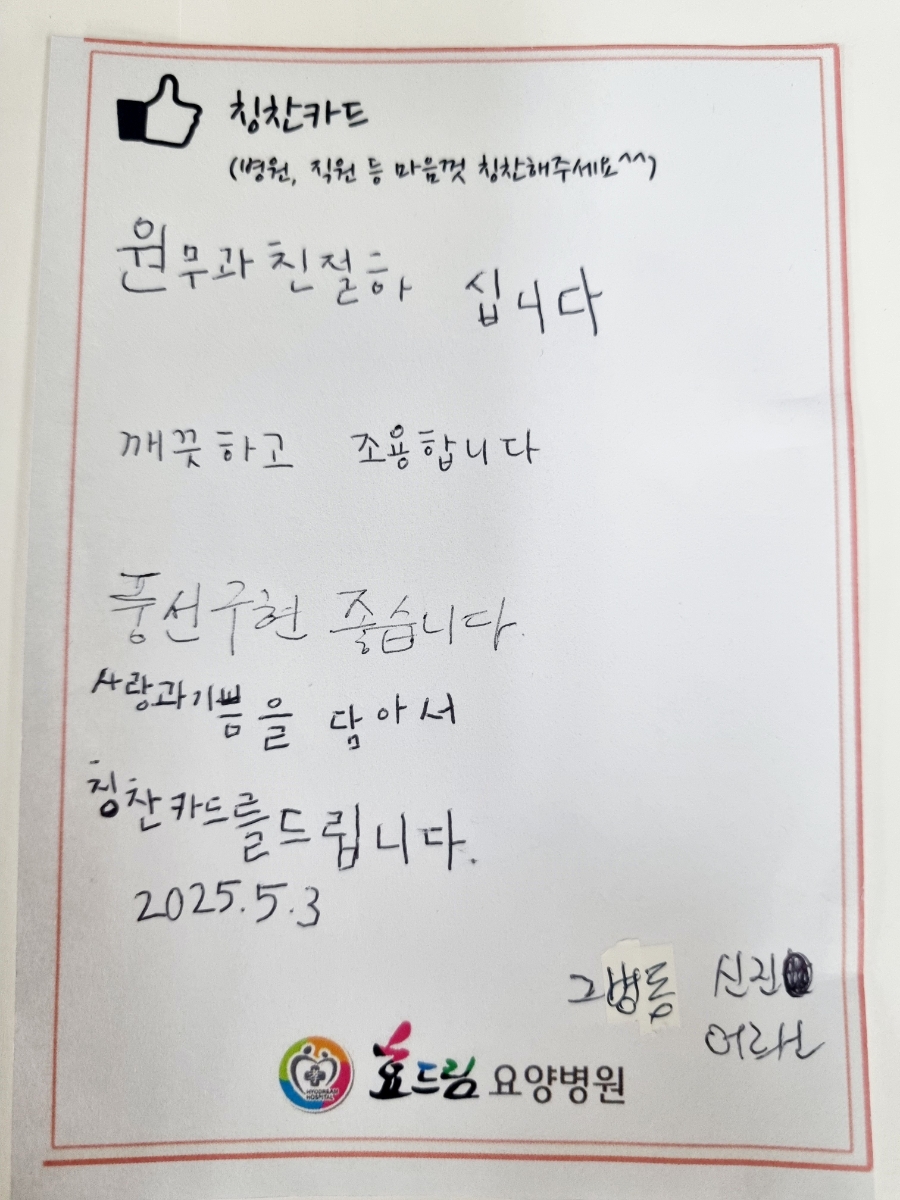 칭찬카드
(병원, 직원 등 마음껏 칭찬해주세요^^)
원무과 친절하 십니다
깨끗하고 조용합니다
풍선구현 좋습니다.
사랑과기쁨을 담아서
칭찬카드를드립니다.
2025.5.3
병동 신진
HYODREAM HOSPITAL
효드림 요양병원